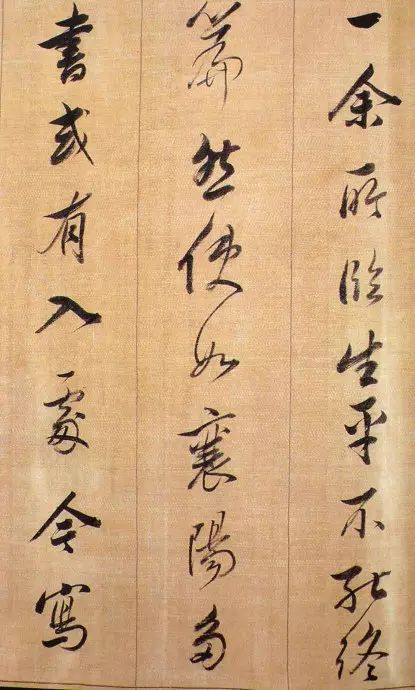 一余所临生平不能终
篇然使如襄陽多
書或有入處今寫